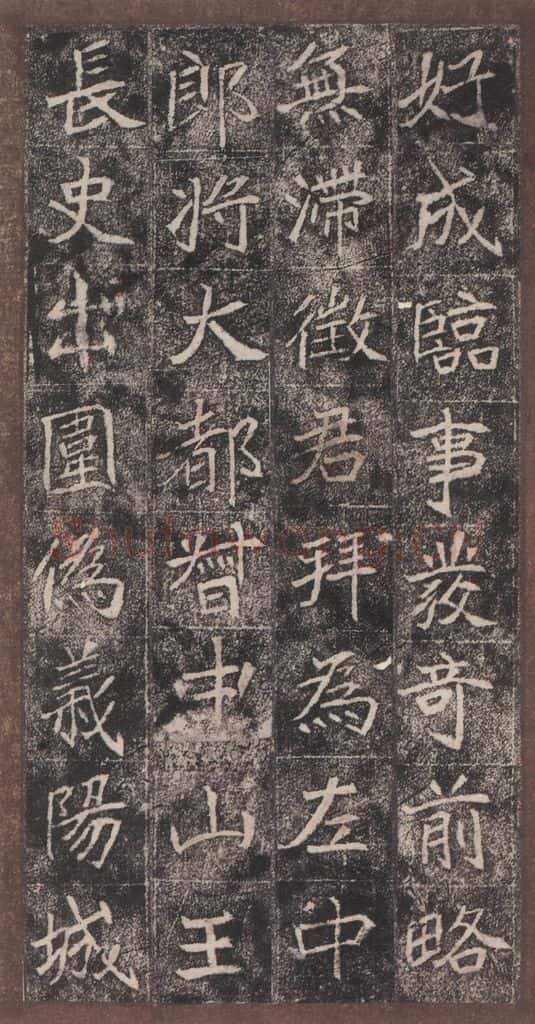 好成臨事發奇前略
無滯徵君拜為左中
郎將大都督中山王
長史出圍偽義陽城